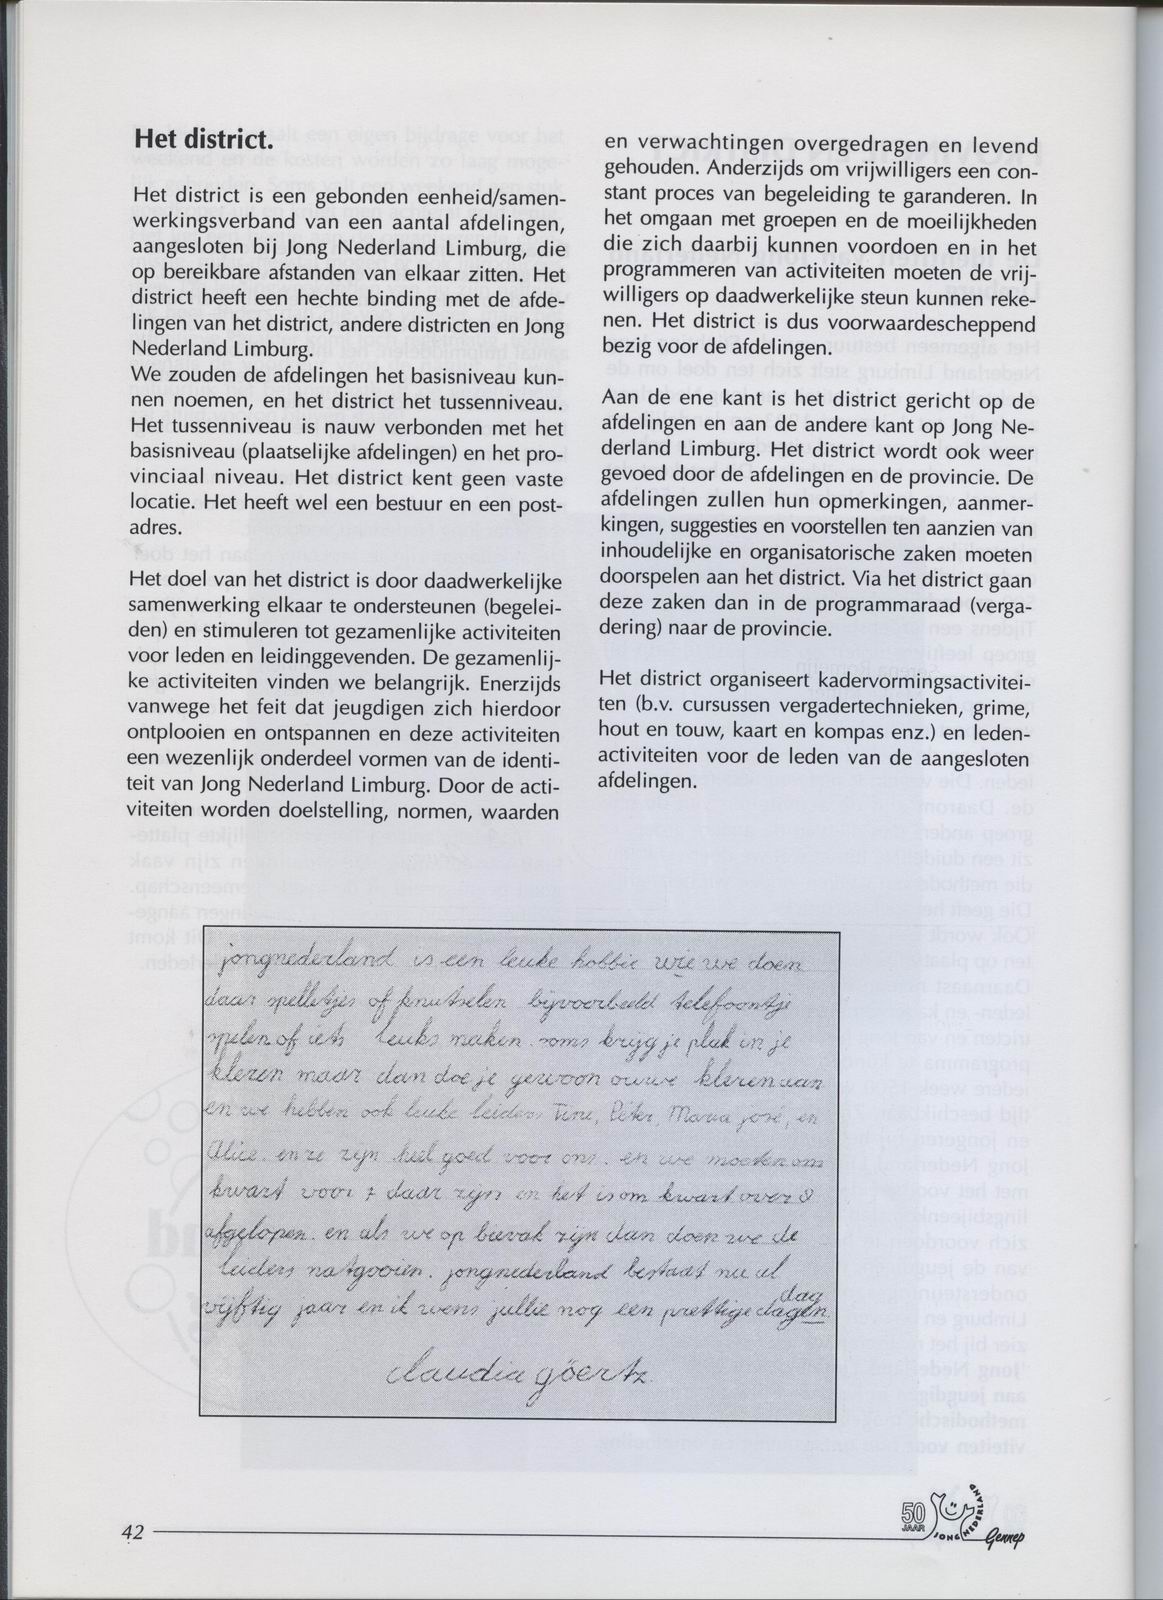 Het district.
Het district is een gebonden eenheid/samen-
werkingsverband van een aantal afdelingen,
aangesloten bij Jong Nederland Limburg, die
op bereikbare afstanden van elkaar zitten. Het
district heeft een hechte binding met de afde-
lingen van het district, andere districten en Jong
Nederland Limburg.
We zouden de afdelingen het basisniveau kun-
nen noemen, en het district het tussenniveau.
Het tussenniveau is nauw verbonden met het
basisniveau (plaatselijke afdelingen) en het pro-
vinciaal niveau. Het district kent geen vaste
locatie. Het heeft wel een bestuur en een post-
adres.
Het doel van het district is door daadwerkelijke
samenwerking elkaar te ondersteunen (begelei-
den) en stimuleren tot gezamenlijke activiteiten
voor leden en leidinggevenden. De gezamenlij-
ke activiteiten vinden we belangrijk. Enerzijds
vanwege het feit dat jeugdigen zich hierdoor
ontplooien en ontspannen en deze activiteiten
een wezenlijk onderdeel vormen van de identi-
teit van Jong Nederland Limburg. Door de acti-
viteiten worden doelstelling, normen, waarden
en verwachtingen overgedragen en levend
gehouden. Anderzijds om vrijwilligers een con-
stant proces van begeleiding te garanderen. In
het omgaan met groepen en de moeilijkheden
die zich daarbij kunnen voordoen en in het
programmeren van activiteiten moeten de vrij-
willigers op daadwerkelijke steun kunnen reke-
nen. Het district is dus voorwaardescheppend
bezig voor de afdelingen.
Aan de ene kant is het district gericht op de
afdelingen en aan de andere kant op Jong Ne-
derland Limburg. Het district wordt ook weer
gevoed door de afdelingen en de provincie. De
afdelingen zullen hun opmerkingen, aanmer-
kingen, suggesties en voorstellen ten aanzien van
inhoudelijke en organisatorische zaken moeten
doorspelen aan het district. Via het district gaan
deze zaken dan in de programmaraad (verga-
dering) naar de provincie.
Het district organiseert kadervormingsactivitei-
ten (b.v. cursussen vergadertechnieken, grime,
hout en touw, kaart en kompas enz.) en leden-
activiteiten voor de leden van de aangesloten
afdelingen.
jongnederland is een leuke hobbie wie we doen
daar spelletjes of knutselen bijvoorbeeld telefoontje
spelen of iets leuks maken. soms krijg je plak in je
kleren maar dan doe je gewoon ouwe kleren aan
en we hebben ook leuke leiders Tine, Peter, Maria josé, en
Alice. en ze zijn heel goed voor ons. en we moeten om
kwart voor 7 daar zijn en het is om kwart over 8
afgelopen. en als we op bievak zijn dan doen we de
leiders natgooien. jongnederland bestaat nu al
dag
vijftig jaar en ik wens jullie nog een prettige dagen.
claudia göertz.
42
50
JAAR
JONG NEDERLAND
Gennep